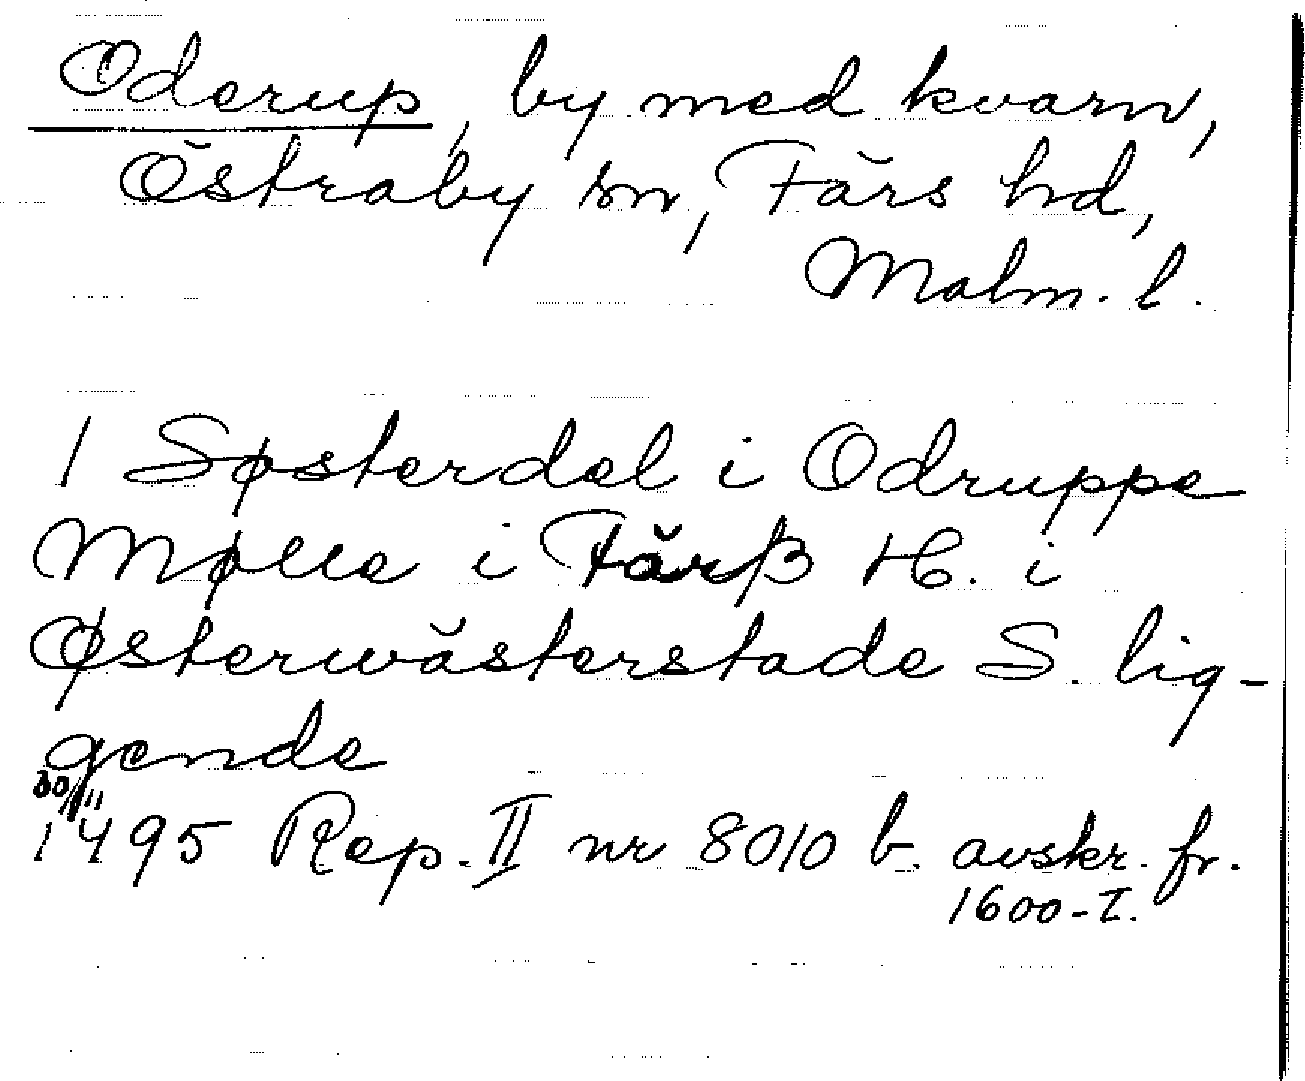 Oderup, by med kvarn,
Östraby sn, Färs hd,
Malm. l.
1 Søsterdel i Odruppe
Mølle i Färß H. i
Østerwästerstade S. lig-
gende
30/11
1495 Rep. II nr 8010 b. avskr. fr.
1600-T.